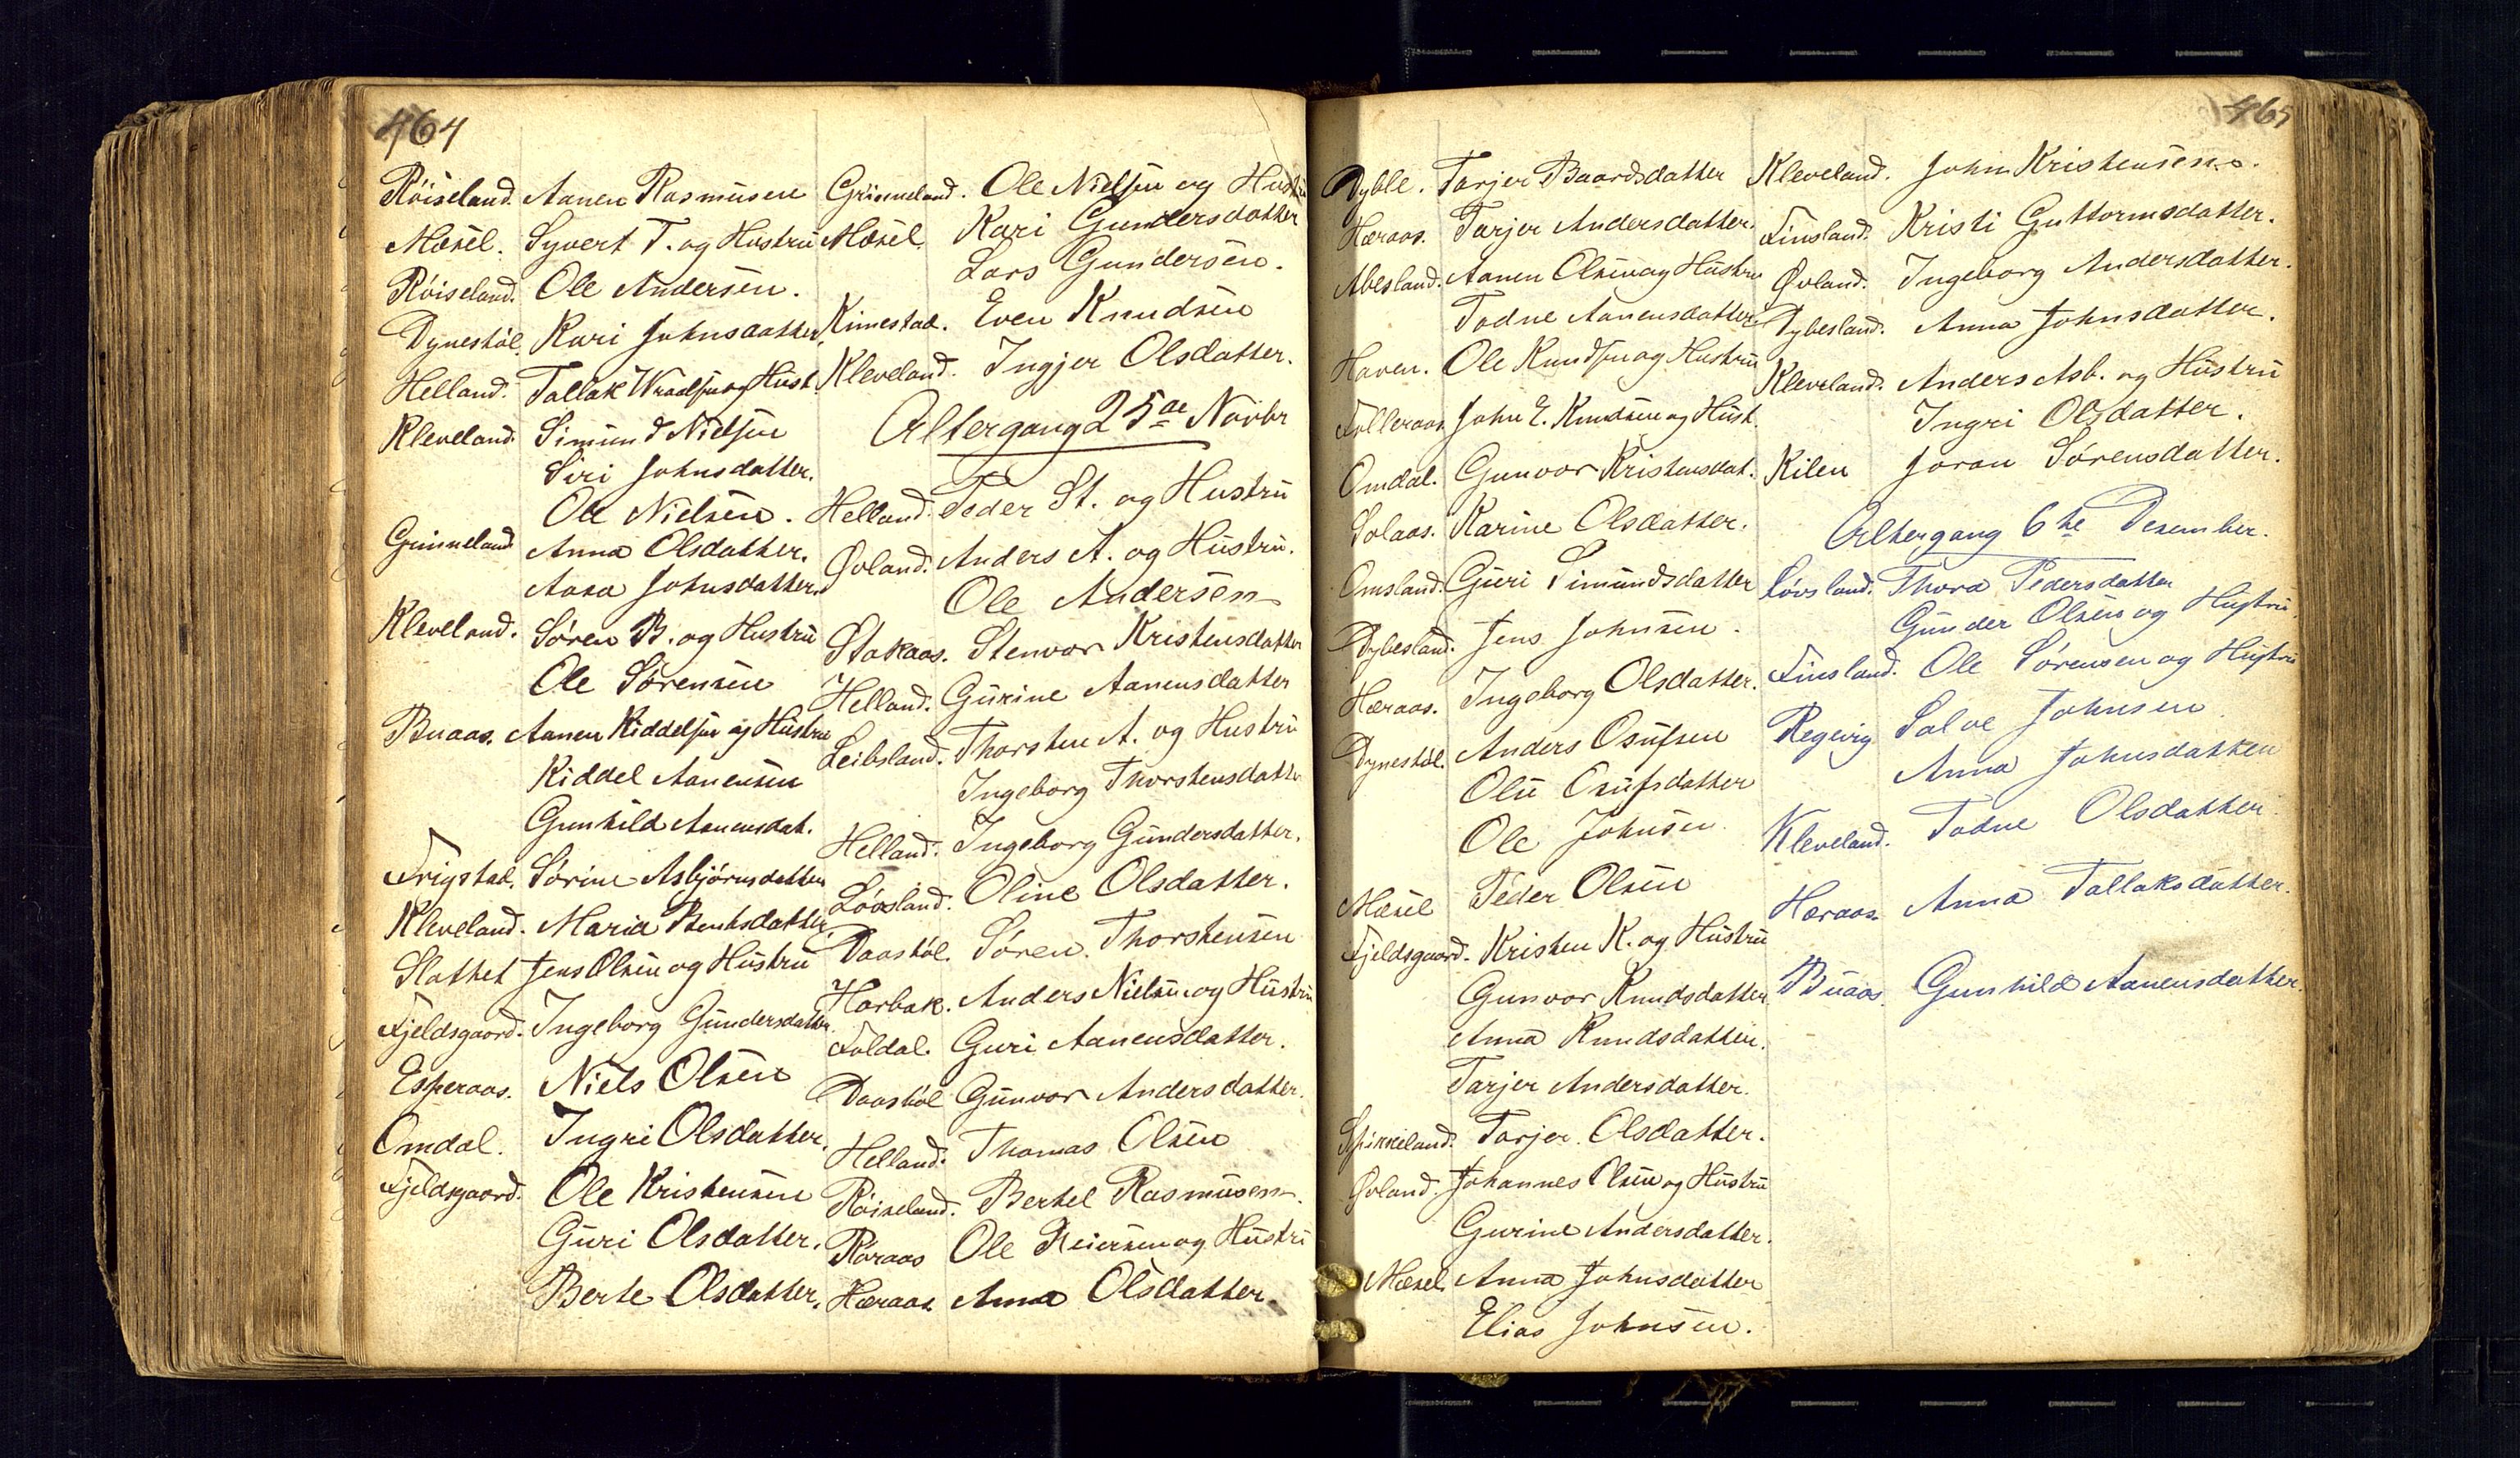 464
Röiseland. Aanen Rasmusen
Mæsel. Syvert T. og Hustru
Röiseland. Ole Andersen.
Dynestöl. Kari Johnsdatter.
Helland. Tallak Wraalsen og Hust.
Kleveland. Simund Nielsen
Siri Johnsdatter.
Ole Nielsen.
Grimeland Anna Olsdatter.
Aasa Johnsdatter.
Kleveland. Sören B. og Hustru
Ole Sörensen
Buaas. Aanen Kiddelsen og Hustru
Kiddel Aanensen
Gunhild Aanensdat.
Frigstad. Sörine Asbjörnsdatter
Kleveland. Maria Bentsdatter.
Slothet Jens Olsen og Hustru
Fjeldsgaard. Ingeborg Gundersdatter.
Esperaas. Niels Olsen
Omdal. Ingri Olsdatter.
Fjeldsgaard. Ole Kristensen
Guri Olsdatter.
Berte Olsdatter.
Grimeland. Ole Nielsen og Hustru
Mæsel. Kari Gundersdatter
Lars Gundersen.
Kimestad. Even Knudsen
Kleveland. Ingjer Olsdatter.
Altergang 25de Novbr
Helland. Peder St. og Hustru
Øvland. Anders A. og Hustru.
Ole Andersen
Stakaas. Stenvor Kristensdatter
Helland. Gurine Aanensdatter
Leibsland. Thorsten A. og Hustru
Ingeborg Thorstensdatter
Helland. Ingeborg Gundersdatter.
Lövsland. Oline Olsdatter.
Daastöl. Sören Thorstensen
Horbak. Anders Nielsen og Hustru
Foldal. Guri Aanensdatter.
Daastöl Gunvor Andersdatter.
Helland. Thomas Olsen
Röiseland. Bertel Rasmusen.
Röraas Ole Reiersen og Hustru
Hæraas. Anna Olsdatter.
465
Dyble. Tarjer Baardsdatter
Hæraas. Tarjer Andersdatter.
Abesland. Aanen Olsen og Hustru
Todne Aanensdatter.
Haven. Ole Knudsen og Hustru
Folleraas John E. Knudsen og Hust.
Omdal. Gunvor Kristensdat.
Solaas. Karine Olsdatter.
Omsland. Guri Simundsdatter
Dybesland. Jens Johnsen.
Hæraas. Ingeborg Olsdatter.
Dynestöl. Anders Osufsen
Olu Osufsdatter
Ole Johnsen.
Mæsel Peder Olsen
Fjeldsgaard. Kristen K. og Hustru
Gunvor Knudsdatter
Anna Knudsdatter.
Tarjer Andersdatter.
Spikkeland. Tarjer Olsdatter.
Øvland. Johannes Olsen og Hustru
Gurine Andersdatter.
Mæsel. Anna Johnsdatter
Elias Johnsen.
Kleveland. John Kristensen.
Finsland. Kristi Guttormsdatter.
Øvland. Ingeborg Andersdatter.
Dybesland. Anna Johnsdatter.
Kleveland. Anders Asb. og Hustru
Ingri Olsdatter.
Kilen Joran Sörensdatter.
Altergang 6te Desember.
Lövsland. Thora Pedersdatter
Gunder Olsen og Hustru
Finsland. Ole Sörensen og Hustru
Regevig Salve Johnsen
Anna Johnsdatter
Kleveland. Todne Olsdatter
Hæraas. Anna Tallaksdatter.
Buaas. Gunhild Aanensdatter.